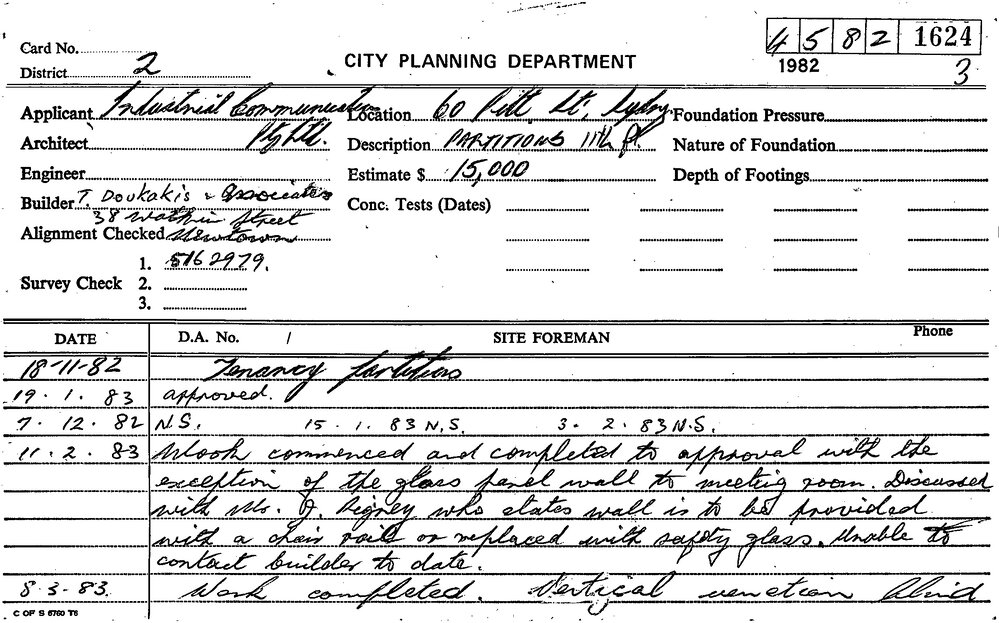 4 5 8 2 1624
Card No.
District 2
CITY PLANNING DEPARTMENT
1982
3
Applicant Industrial Communication
Pty Ltd.
Location 60 Pitt St, Sydney
Foundation Pressure
Architect
Description PARTITIONS 11th fl.
Nature of Foundation
Engineer
Estimate $ 15,000
Depth of Footings
Builder T. Doukakis & Associates
38 Watkin Street
Newtown
Conc. Tests (Dates)
Alignment Checked
Survey Check
1. 5162979.
2.
3.
DATE D.A. No. / SITE FOREMAN Phone
18-11-82 Tenancy partitions
19. 1. 83 approved.
7. 12. 82 N.S. 15. 1. 83 N.S. 3. 2. 83 N.S.
11. 2. 83 Work commenced and completed to approval with the
exception of the glass panel wall to meeting room. Discussed
with Mr. J. Rigney who states wall is to be provided
with a chair rail or replaced with safety glass. Unable to
contact builder to date.
8. 3. 83. Work completed. Vertical venetian blind
C OF S 6760 T6